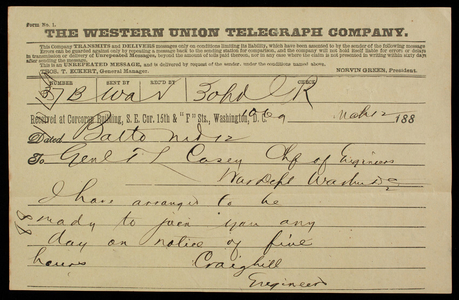 Form No. 1.
THE WESTERN UNION TELEGRAPH COMPANY.
This Company TRANSMITS and DELIVERS messages only on conditions limiting its liability, which have been assented to by the sender of the following message
Errors can be guarded against only by repeating a message back to the sending station for comparison, and the company will not hold itself liable for errors or delays
in transmission or delivery of Unrepeated Messages, beyond the amount of tolls paid thereon, nor in any case where the claim is not presented in writing within sixty days
after sending the message.
This is an UNREPEATED MESSAGE, and is delivered by request of the sender, under the conditions named above.
THOS. T. ECKERT, General Manager. NORVIN GREEN, President.
NUMBER SENT BY REC'D BY CHECK
Received at Corcoran Building, S. E. Cor. 15th & "F" Sts., Washington, D. C. 188
Dated Balto Md 12
To Genl T L Casey Chf of Engineers
War Dept Washn DC
I have arranged to be
ready to join you any
day on notice of five
hours Craighill
Engineer